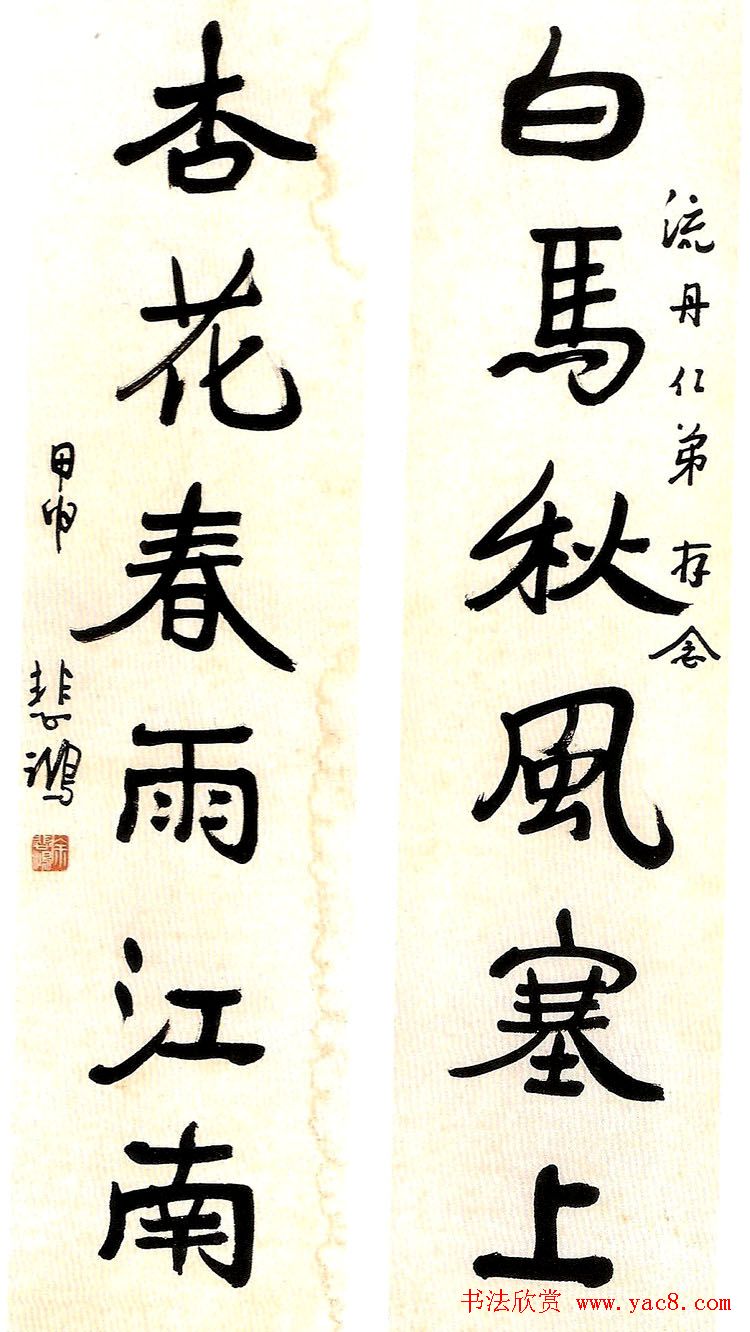 白馬秋風塞上
流丹仁弟存念
杏花春雨江南
甲申
悲鴻
书法欣赏 www.yac8.com